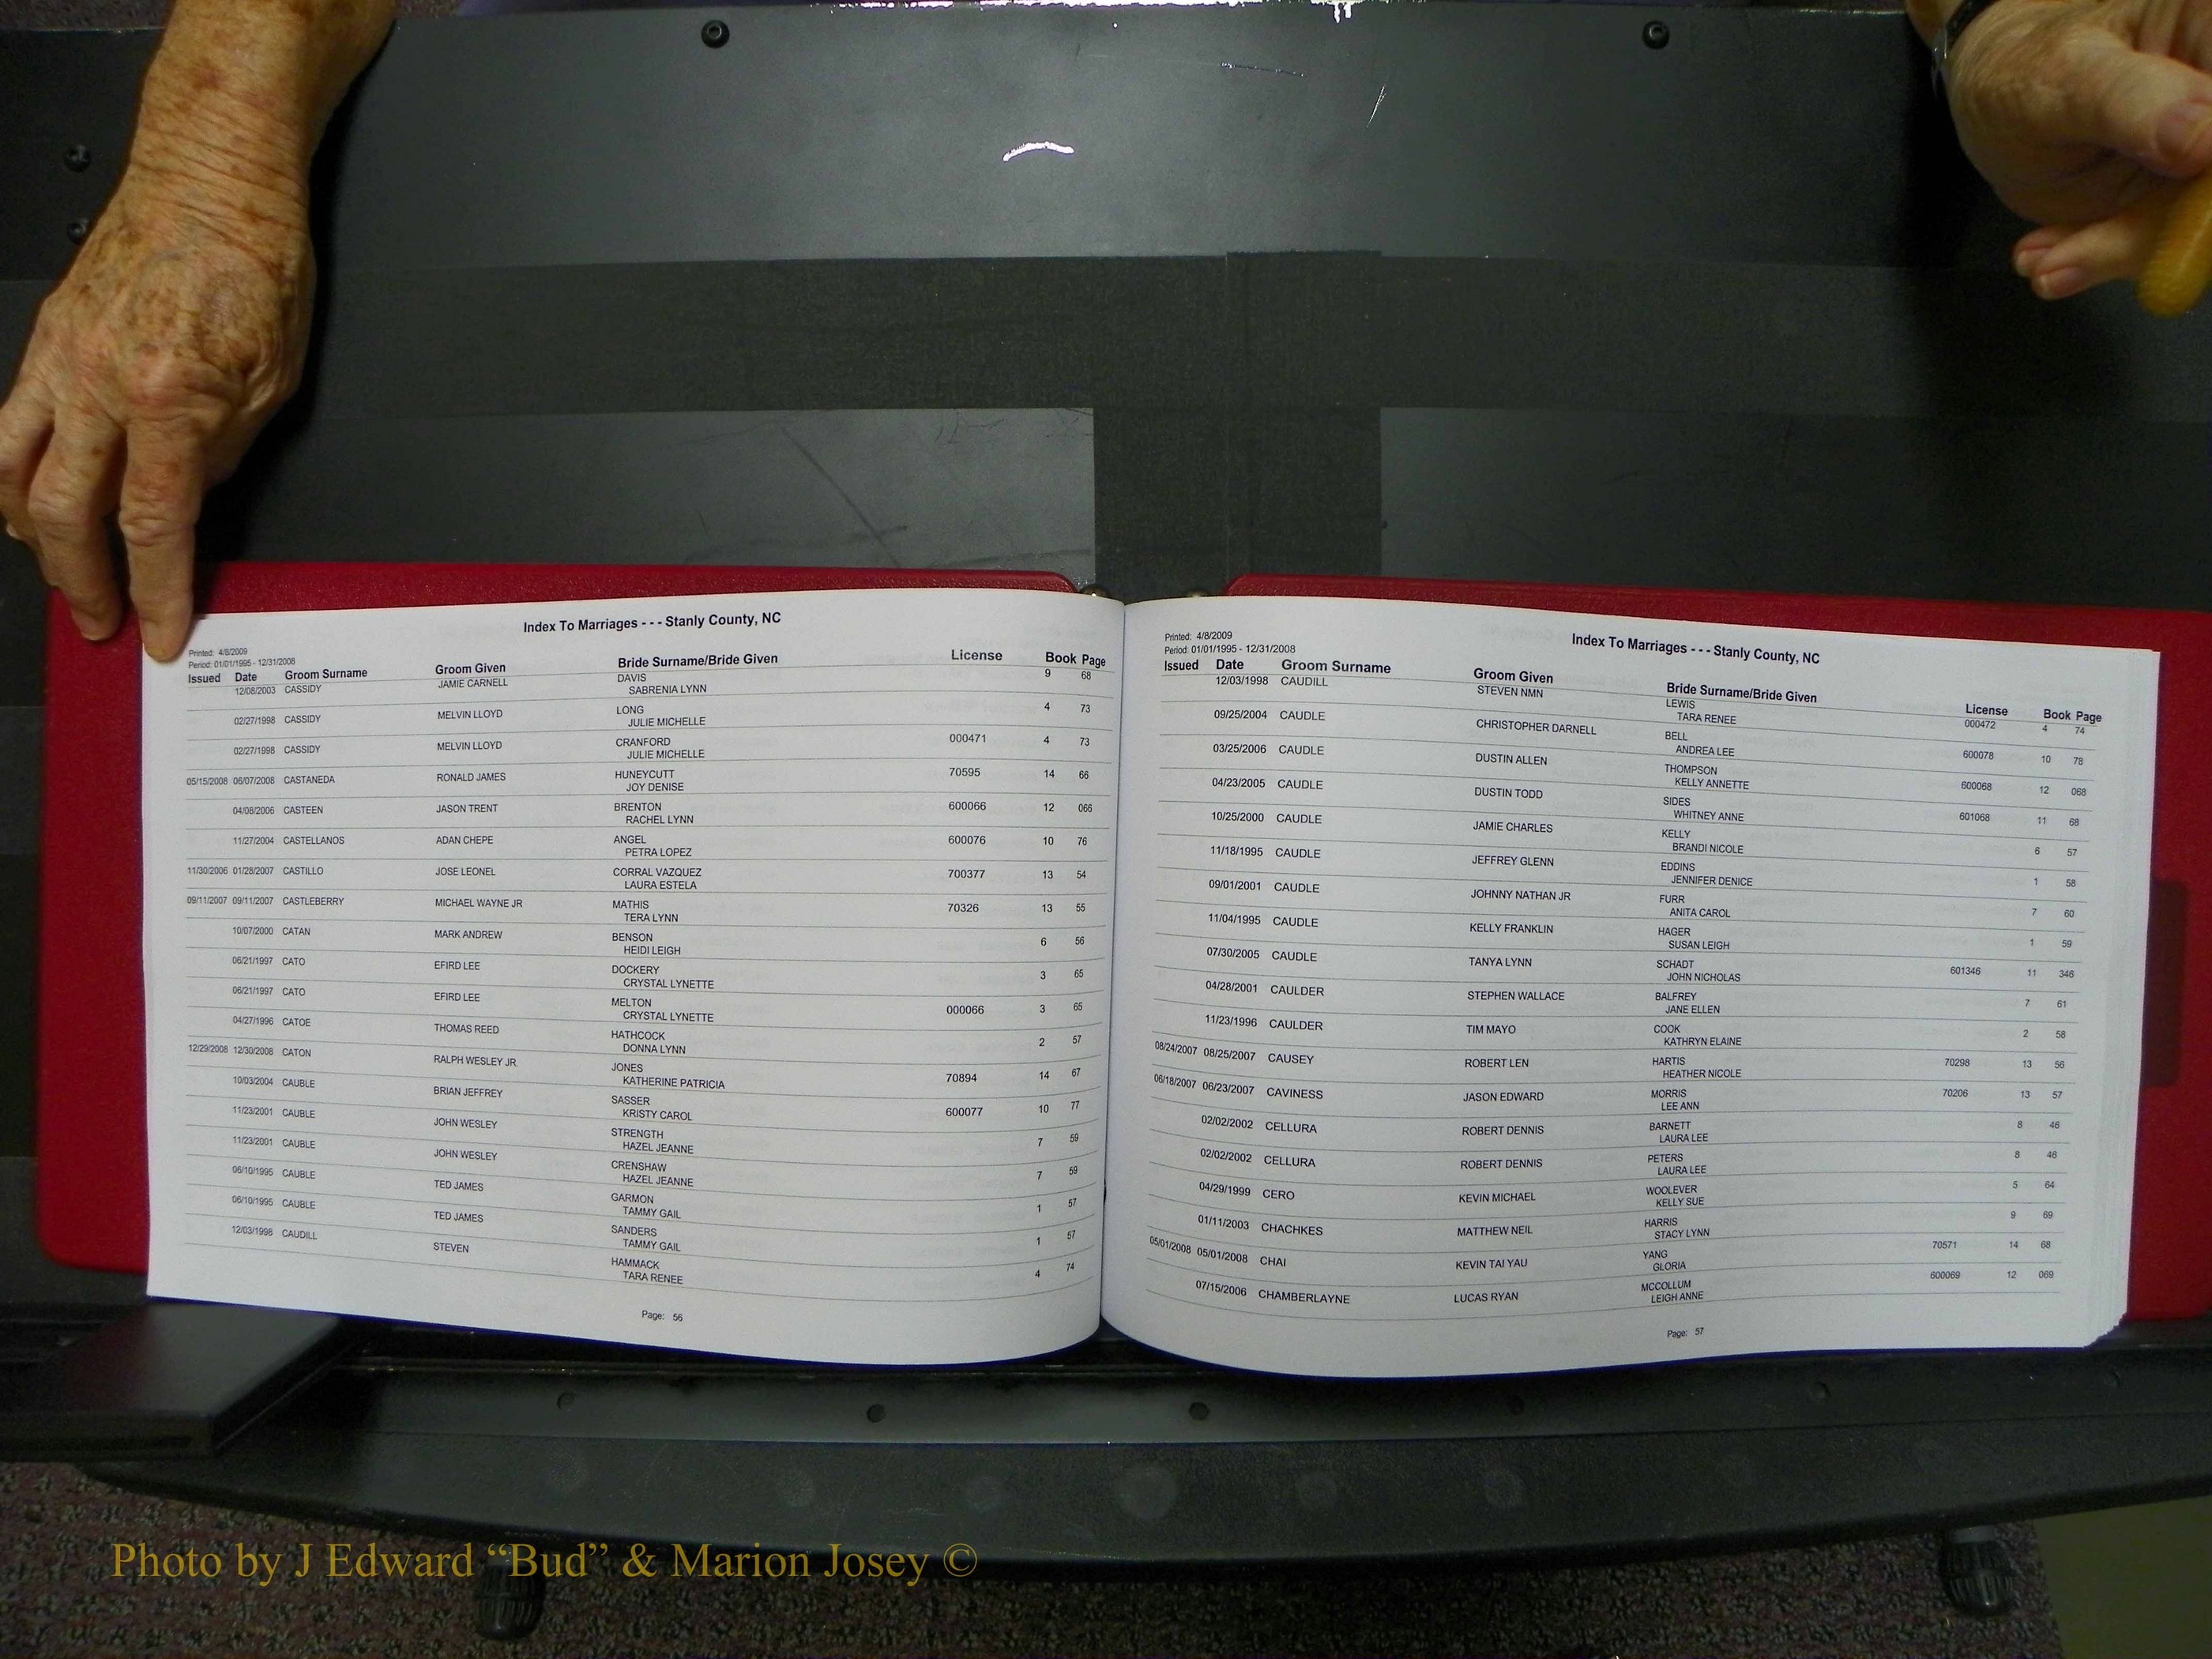 Index To Marriages - - - Stanly County, NC
Printed: 4/8/2009
Period: 01/01/1995 - 12/31/2008
Issued Date Groom Surname Groom Given Bride Surname/Bride Given License Book Page
12/08/2003 CASSIDY JAMIE CARNELL DAVIS 9 68
SABRENIA LYNN
02/27/1998 CASSIDY MELVIN LLOYD LONG 4 73
JULIE MICHELLE
02/27/1998 CASSIDY MELVIN LLOYD CRANFORD 000471 4 73
JULIE MICHELLE
05/15/2008 06/07/2008 CASTANEDA RONALD JAMES HUNEYCUTT 70595 14 66
JOY DENISE
04/08/2006 CASTEEN JASON TRENT BRENTON 600066 12 066
RACHEL LYNN
11/27/2004 CASTELLANOS ADAN CHEPE ANGEL 600076 10 76
PETRA LOPEZ
11/30/2006 01/28/2007 CASTILLO JOSE LEONEL CORRAL VAZQUEZ 700377 13 54
LAURA ESTELA
09/11/2007 09/11/2007 CASTLEBERRY MICHAEL WAYNE JR MATHIS 70326 13 55
TERA LYNN
10/07/2000 CATAN MARK ANDREW BENSON 6 56
HEIDI LEIGH
06/21/1997 CATO EFIRD LEE DOCKERY 3 65
CRYSTAL LYNETTE
06/21/1997 CATO EFIRD LEE MELTON 000066 3 65
CRYSTAL LYNETTE
04/27/1996 CATOE THOMAS REED HATHCOCK 2 57
DONNA LYNN
12/29/2008 12/30/2008 CATON RALPH WESLEY JR. JONES 70894 14 67
KATHERINE PATRICIA
10/03/2004 CAUBLE BRIAN JEFFREY SASSER 600077 10 77
KRISTY CAROL
11/23/2001 CAUBLE JOHN WESLEY STRENGTH 7 59
HAZEL JEANNE
11/23/2001 CAUBLE JOHN WESLEY CRENSHAW 7 59
HAZEL JEANNE
06/10/1995 CAUBLE TED JAMES GARMON 1 57
TAMMY GAIL
06/10/1995 CAUBLE TED JAMES SANDERS 1 57
TAMMY GAIL
12/03/1998 CAUDILL STEVEN HAMMACK 4 74
TARA RENEE
Page: 56
Index To Marriages - - - Stanly County, NC
Printed: 4/8/2009
Period: 01/01/1995 - 12/31/2008
Issued Date Groom Surname Groom Given Bride Surname/Bride Given License Book Page
12/03/1998 CAUDILL STEVEN NMN LEWIS 000472 4 74
TARA RENEE
09/25/2004 CAUDLE CHRISTOPHER DARNELL BELL 600078 10 78
ANDREA LEE
03/25/2006 CAUDLE DUSTIN ALLEN THOMPSON 600068 12 068
KELLY ANNETTE
04/23/2005 CAUDLE DUSTIN TODD SIDES 601068 11 68
WHITNEY ANNE
10/25/2000 CAUDLE JAMIE CHARLES KELLY 6 57
BRANDI NICOLE
11/18/1995 CAUDLE JEFFREY GLENN EDDINS 1 58
JENNIFER DENICE
09/01/2001 CAUDLE JOHNNY NATHAN JR FURR 7 60
ANITA CAROL
11/04/1995 CAUDLE KELLY FRANKLIN HAGER 1 59
SUSAN LEIGH
07/30/2005 CAUDLE TANYA LYNN SCHADT 601346 11 346
JOHN NICHOLAS
04/28/2001 CAULDER STEPHEN WALLACE BALFREY 7 61
JANE ELLEN
11/23/1996 CAULDER TIM MAYO COOK 2 58
KATHRYN ELAINE
08/24/2007 08/25/2007 CAUSEY ROBERT LEN HARTIS 70298 13 56
HEATHER NICOLE
06/18/2007 06/23/2007 CAVINESS JASON EDWARD MORRIS 70206 13 57
LEE ANN
02/02/2002 CELLURA ROBERT DENNIS BARNETT 8 46
LAURA LEE
02/02/2002 CELLURA ROBERT DENNIS PETERS 8 46
LAURA LEE
04/29/1999 CERO KEVIN MICHAEL WOOLEVER 5 64
KELLY SUE
01/11/2003 CHACHKES MATTHEW NEIL HARRIS 9 69
STACY LYNN
05/01/2008 05/01/2008 CHAI KEVIN TAI YAU YANG 70571 14 68
GLORIA
07/15/2006 CHAMBERLAYNE LUCAS RYAN MCCOLLUM 600069 12 069
LEIGH ANNE
Page: 57
Photo by J Edward “Bud” & Marion Josey ©